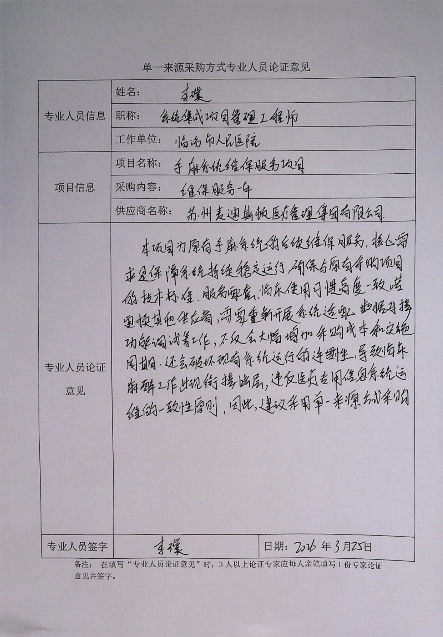 单一来源采购方式专业人员论证意见
专业人员信息
姓名：
职称： 系统集成项目管理工程师
工作单位： 临汾市人民医院
项目信息
项目名称： 手麻系统维保服务项目
采购内容： 维保服务一年
供应商名称： 苏州麦迪斯顿医疗管理集团有限公司
专业人员论证
意见
本项目为原有手麻系统的后续维保服务，核心需
求是保障系统持续稳定运行，确保与原有采购项目
的技术标准、服务配套、临床使用习惯高度一致，若
更换其他供应商，需要重新开展系统适配、数据对接
功能调试等工作，不仅会大幅增加采购成本和实施
周期，还会破坏现有系统运行的连续性，导致临床
麻醉工作出现衔接断层，违反医疗专用信息系统运
维的一致性原则，因此，建议采用单一来源方式采购
专业人员签字
日期： 2026 年 3 月 25 日
备注： 在填写“专业人员论证意见”时，3 人以上论证专家应每人亲笔填写 1 份专家论证
意见并签字。